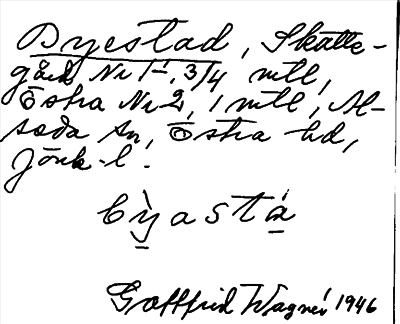 Byestad, Skatte-
gård Nr 1-, 3/4 mtl,
Östra Nr 2, 1 mtl, Al-
seda sn, Östra hd,
Jönk. l.
b̀y̱astá̱
Gottfrid Wagnér 1946